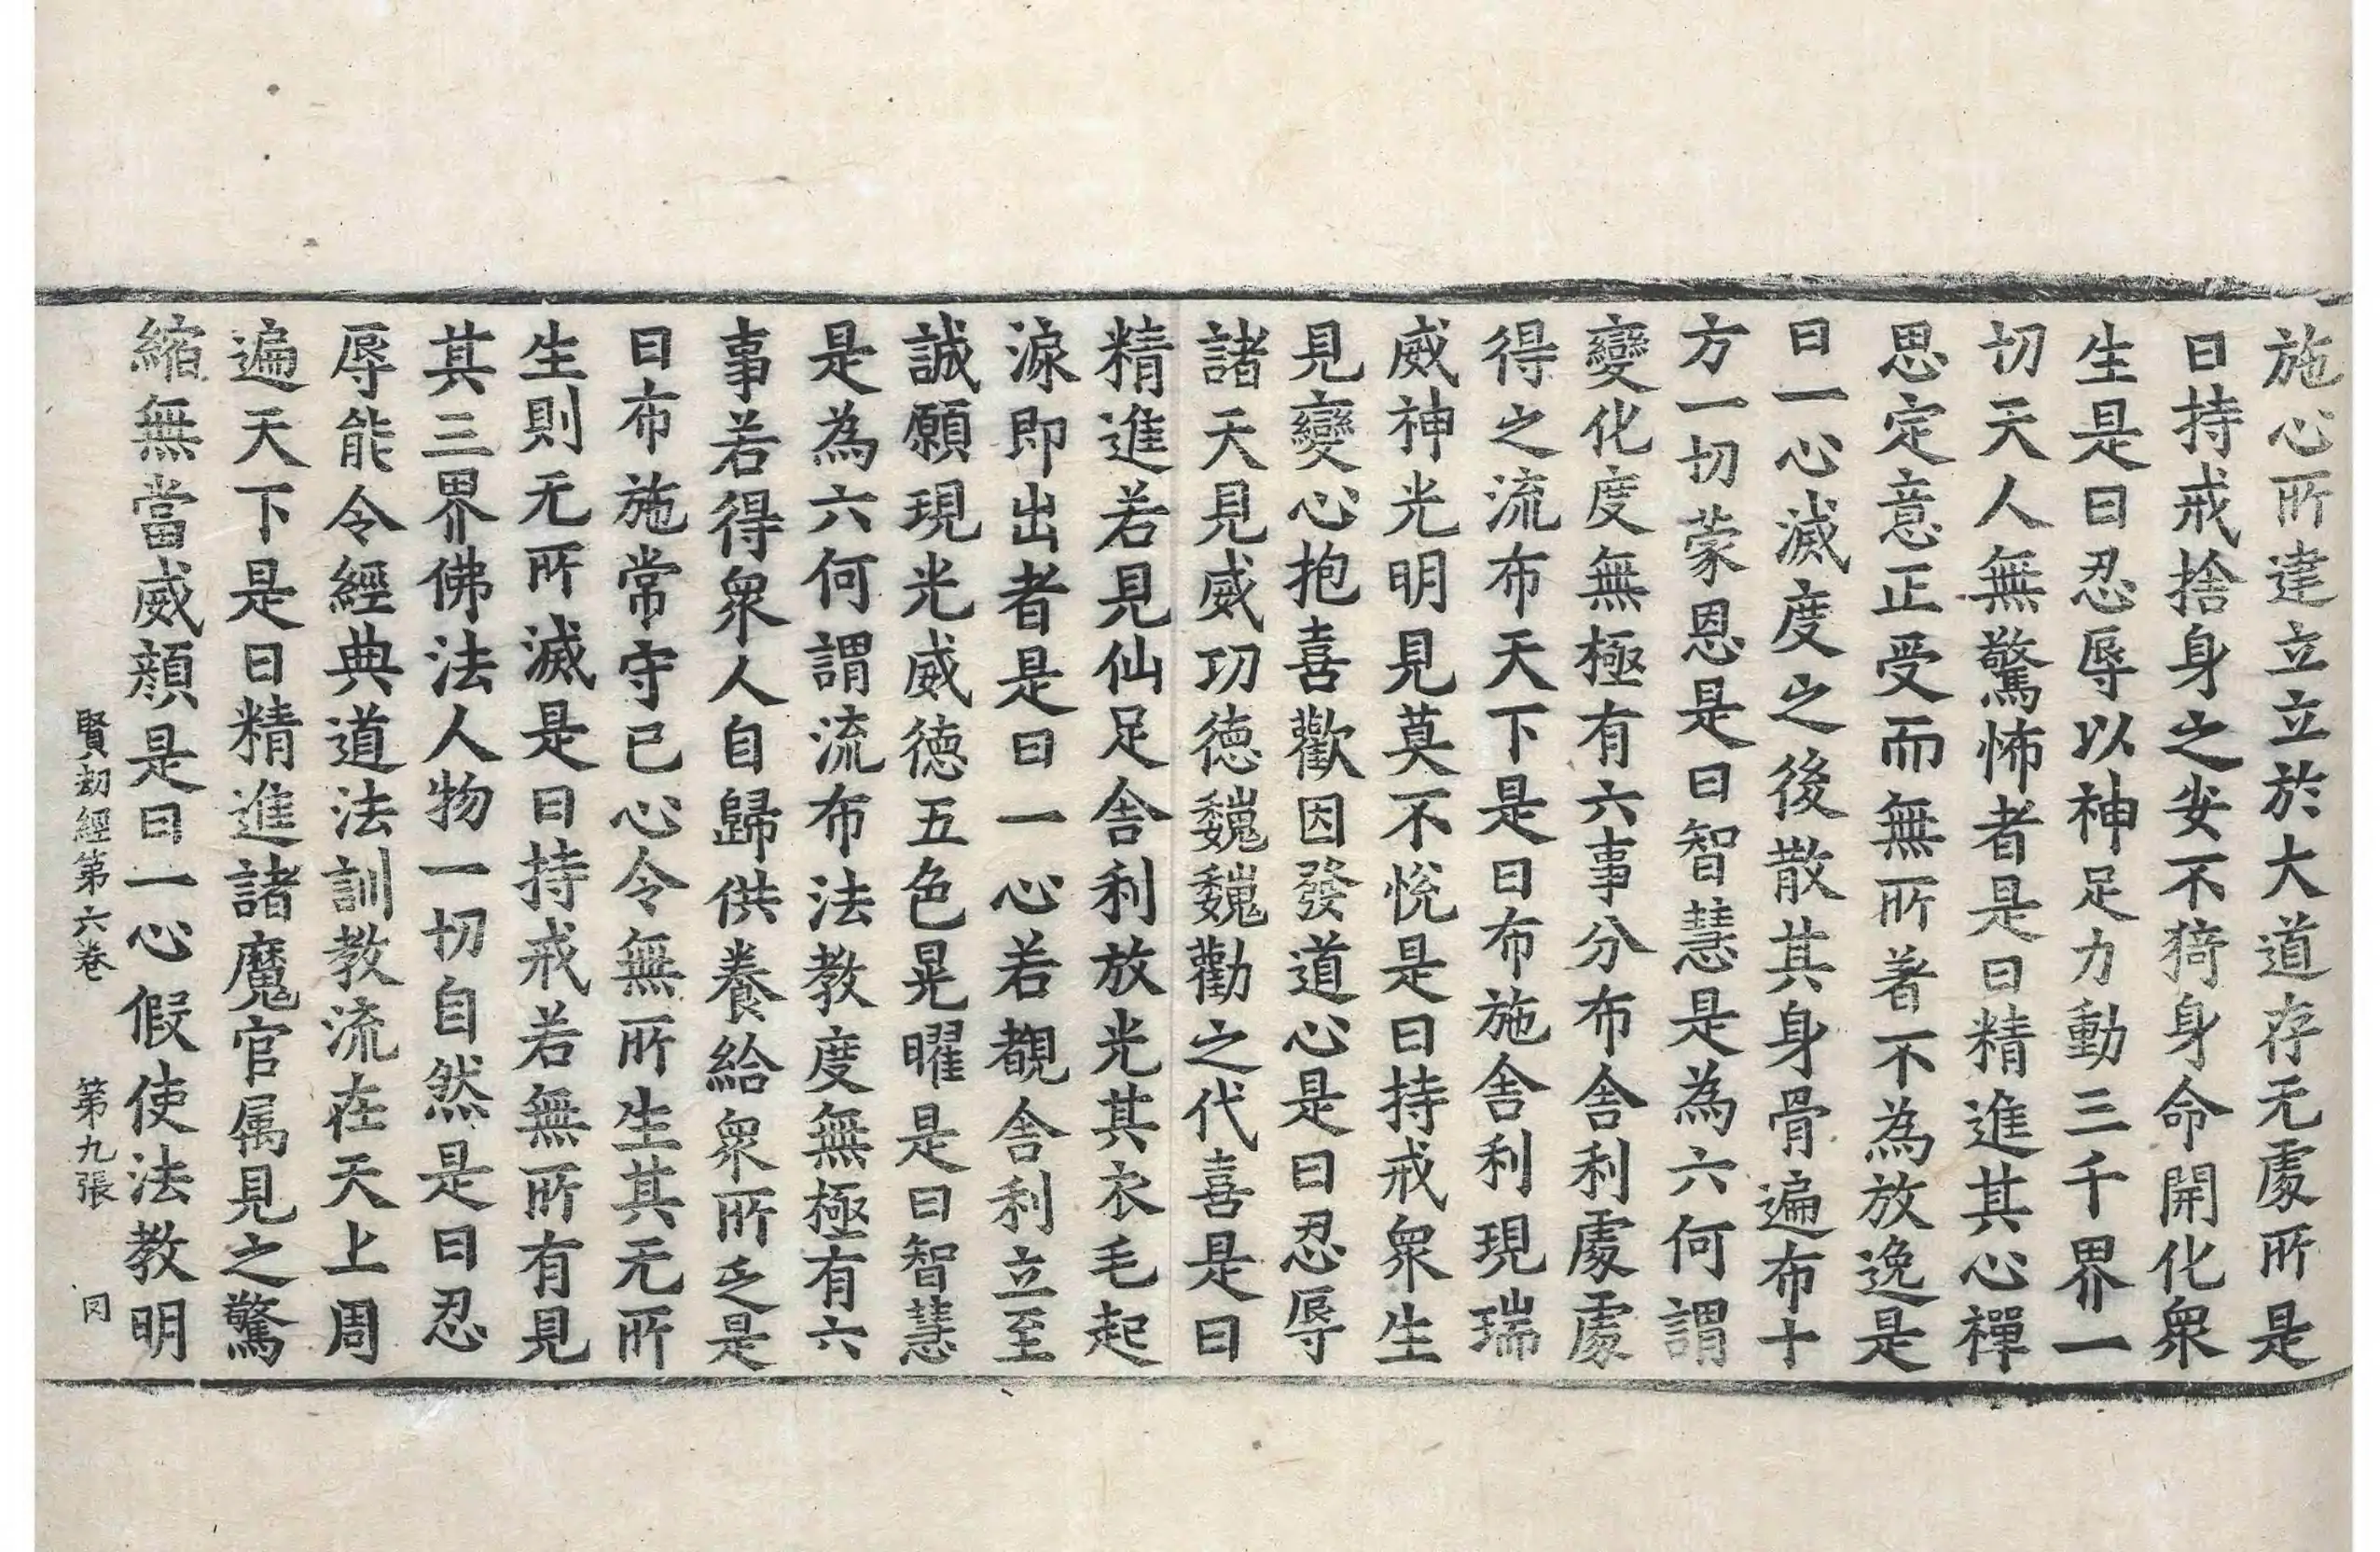 施心所達立立於大道存无處所是
曰持戒捨身之安不猗身命開化衆
生是曰忍辱以神足力動三千界一
切天人無驚怖者是曰精進其心禪
思定意正受而無所著不為放逸是
曰一心滅度之後散其身骨遍布十
方一切蒙恩是曰智慧是為六何謂
變化度無極有六事分布舍利處處
得之流布天下是曰布施舍利現瑞
威神光明見莫不悅是曰持戒衆生
見變心抱喜歡因發道心是曰忍辱
諸天見威功德魏魏勸之代喜是曰
精進若見仙足舍利放光其衣毛起
淚即出者是曰一心若覩舍利立至
誠願現光威德五色晃曜是曰智慧
是為六何謂流布法教度無極有六
事若得衆人自歸供養給衆所乏是
曰布施常守己心令無所生其无所
生則无所滅是曰持戒若無所有見
其三界佛法人物一切自然是曰忍
辱能令經典道法訓教流在天上周
遍天下是曰精進諸魔官属見之驚
縮無當威顏是曰一心假使法教明
賢劫經第六卷 第九張 同